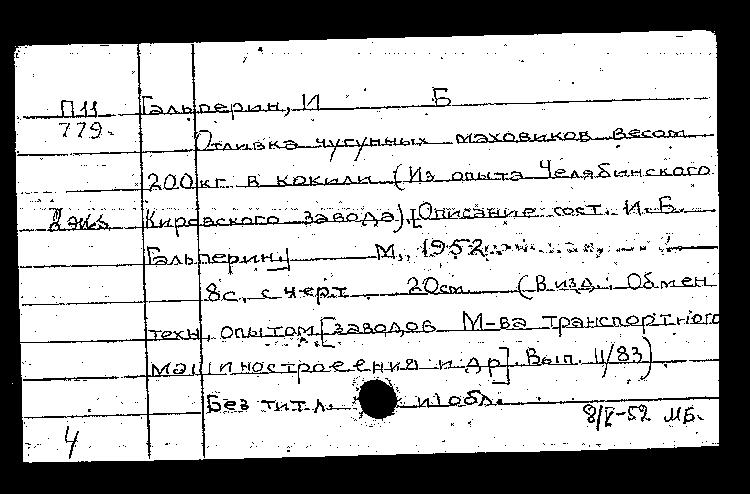 П11 Гальперин, И Б
779.
Отливка чугунных маховиков весом
200 кг в кокили (Из опыта Челябинского
2 экз Кировского завода).[Описание сост. И.Б.
Гальперин.] М., 1952
8с. с черт. 20см (В изд.: Обмен
техн. опытом [заводов М-ва транспортного
машиностроения и др]. Вып. 11/83)
Без тит. л. и обл.
4 8/V-52 МБ.